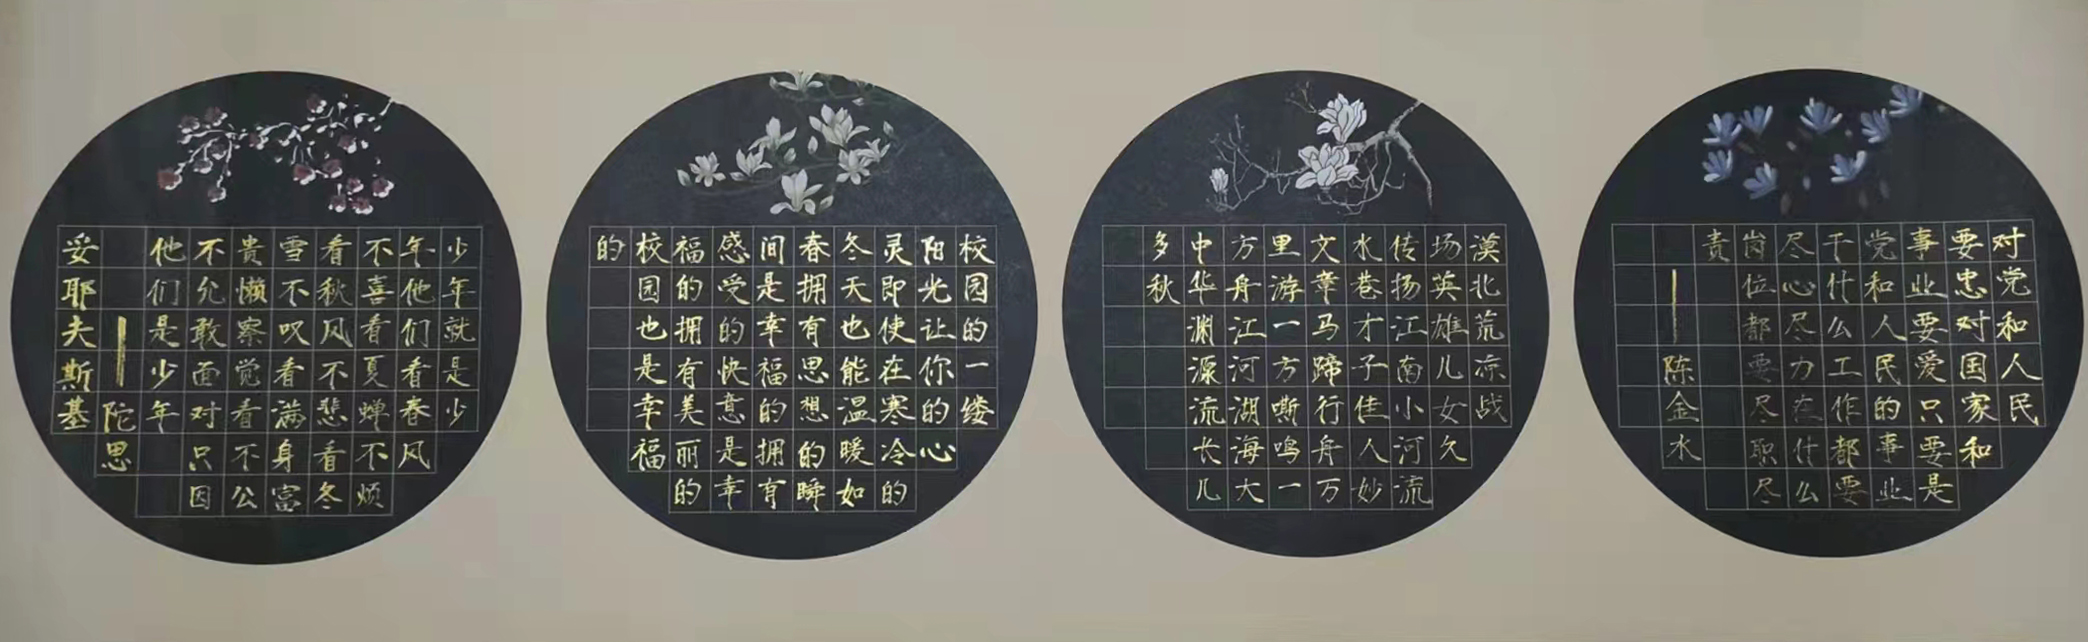 少年就是少
年他们看春风
不喜看夏蝉不烦
看秋风不悲看冬
雪不叹看满身富
贵懒察觉看不公
不允敢面对只因
他们是少年
——陀思
妥耶夫斯基
校园的一缕
阳光让你的心
灵即使在寒冷的
冬天也能温暖如
春拥有思想的瞬
间是幸福的拥有
感受的快意是幸
福的拥有美丽的
校园也是幸福
的
漠北荒凉战
场英雄儿女久
传扬江南小河流
水巷才子佳人妙
文章马蹄行舟万
里游一方嘶鸣一
方舟江河湖海大
中华渊源流长几
多秋
对党和人民
要忠对国家和
事业要爱只要是
党和人民的事业
干什么工作都要
尽心尽力在什么
岗位都要尽职尽
责
——陈金水